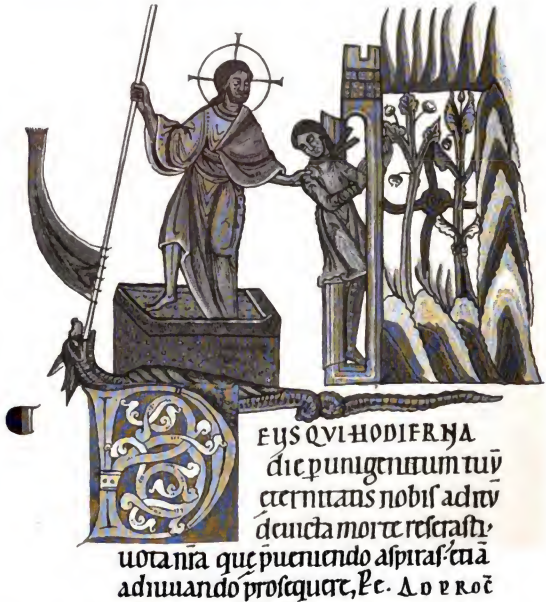 D EUS QVI HODIERNA
die p̱ unigenitum tuū
eternitatis nobis aditū
deuicta morte reserasti·
uota nr̄a que p̄ueniendo aspiras· etiā
adiuuando prosequere, Pe. AD PROC̄